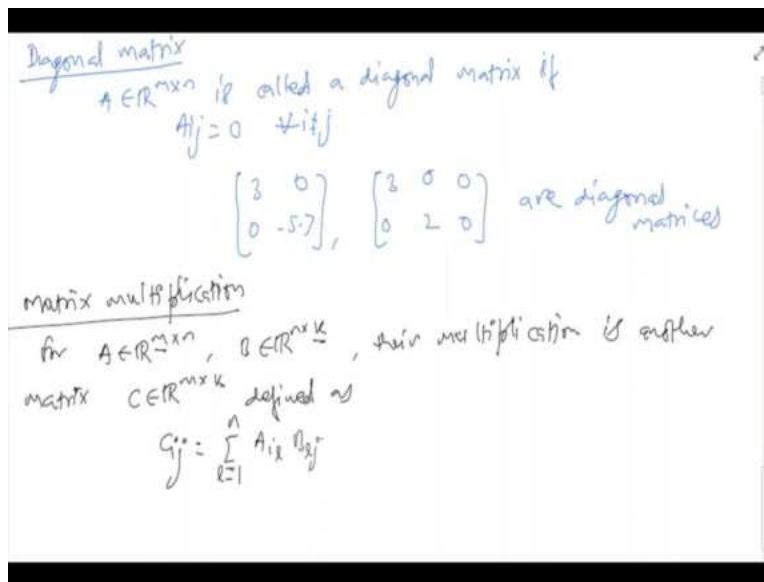 Diagonal matrix
A ∈ ℝ^{m×n} is called a diagonal matrix if
A_{ij} = 0 ∀ i ≠ j
[3 0; 0 -5.7], [3 0 0; 0 2 0] are diagonal matrices
Matrix multiplication
for A ∈ ℝ^{m×n}, B ∈ ℝ^{n×k}, their multiplication is another
matrix C ∈ ℝ^{m×k} defined as
C_{ij} = \sum_{l=1}^{n} A_{il} B_{lj}